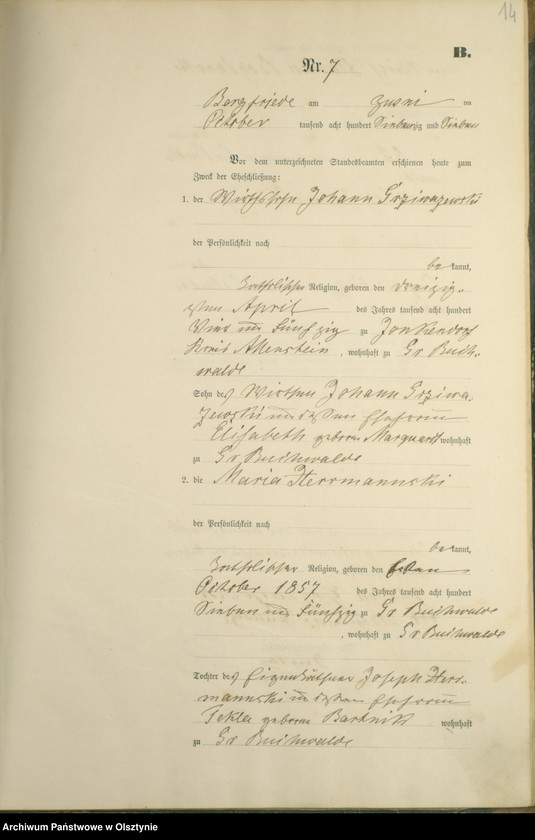 14
B.
Nr. 7
Bergfriede am zwei ten
October tausend acht hundert Siebenzig und Sieben
Vor dem unterzeichneten Standesbeamten erschienen heute zum
Zweck der Eheschließung:
1. der Wirthssohn Johann Grziwazewski
der Persönlichkeit nach
be kannt,
katholischer Religion, geboren den dreizig-
sten April des Jahres tausend acht hundert
Vier und Fünfzig zu Jonkendorf
Kreis Allenstein, wohnhaft zu Gr Buch-
walde
Sohn des Wirthen Johann Grziwa-
zewski und dessen Ehefrau
Elisabeth geborne Marquardt wohnhaft
zu Gr Buchwalde
2. die Maria Herrmannski
der Persönlichkeit nach
be kannt,
katholischer Religion, geboren den
October 1857 des Jahres tausend acht hundert
Sieben und Fünfzig zu Gr Buchwalde
, wohnhaft zu Gr Buchwalde
Tochter des Eigenkäthner Joseph Herr-
mannski und dessen Ehefrau
Tekla geborne Bartnik wohnhaft
zu Gr Buchwalde
Archiwum Państwowe w Olsztynie